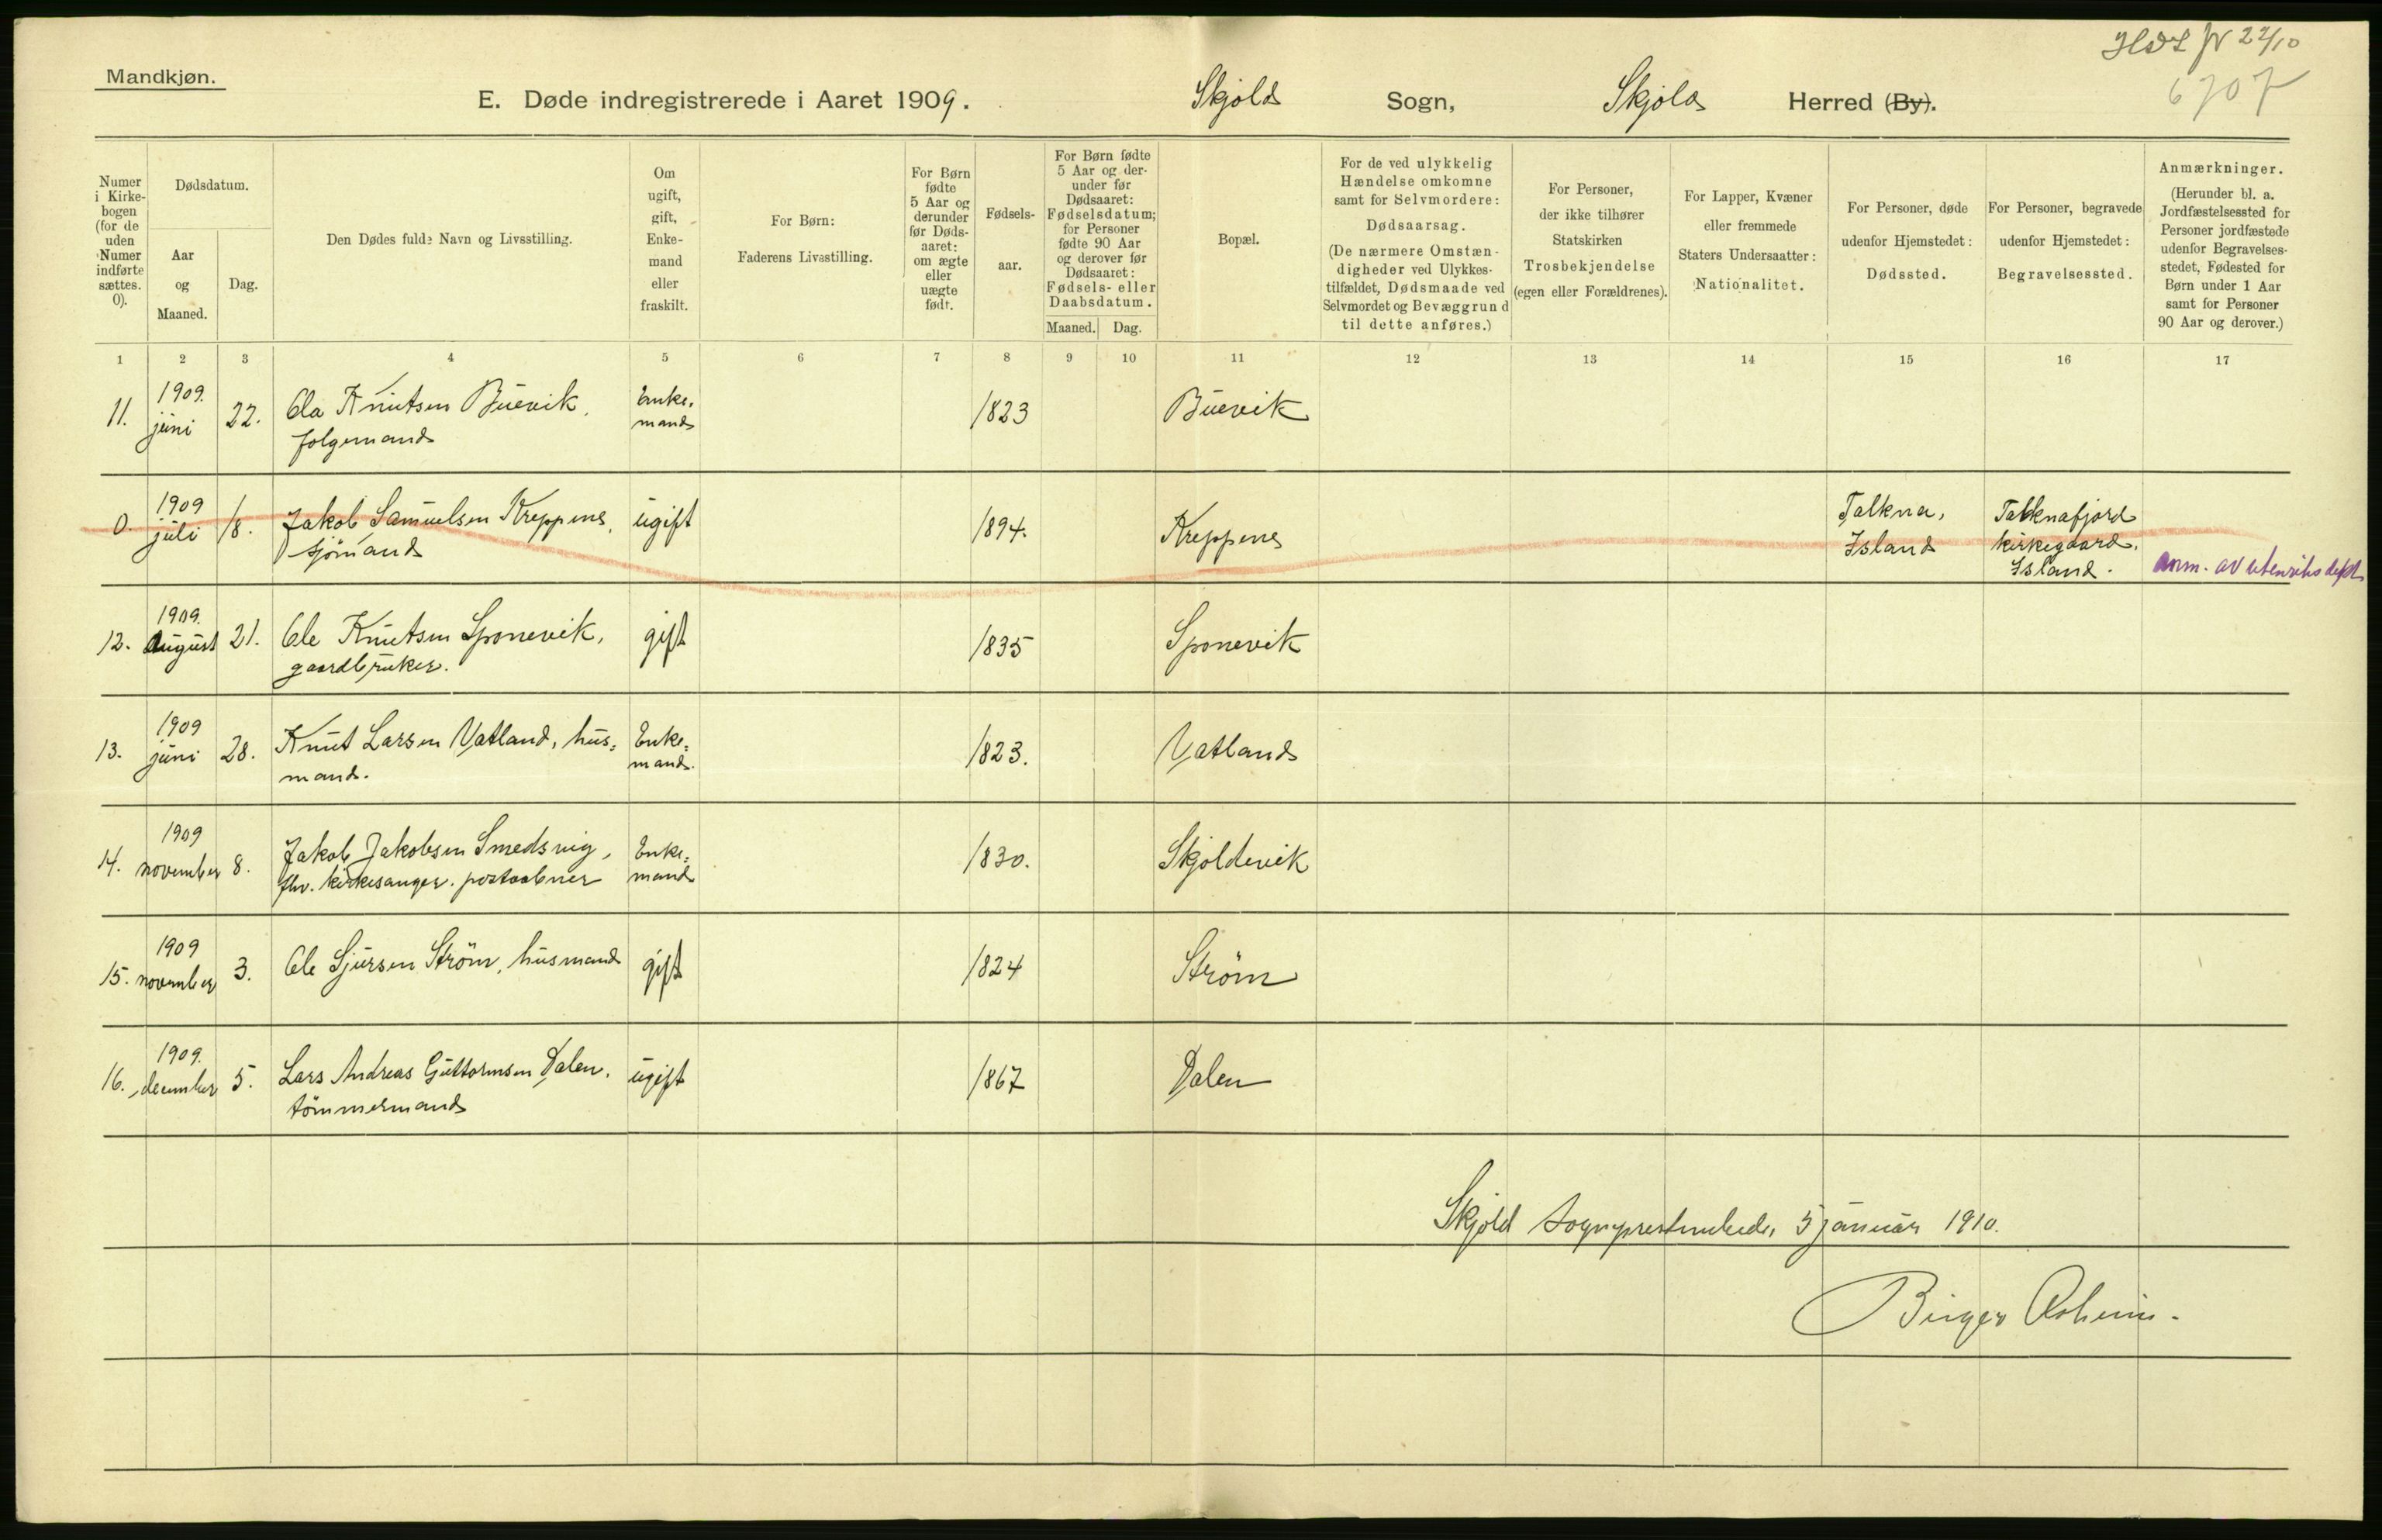 Mandkjøn.
22/10
6707
E. Døde indregistrerede i Aaret 1909. Skjold Sogn, Skjold Herred (By).
Numer i Kirkebogen (for de uden Numer indførte sættes. 0).
Dødsdatum.
Aar og Maaned.
Dag.
Den Dødes fulde Navn og Livsstilling.
Om ugift, gift, Enkemand eller fraskilt.
For Børn: Faderens Livsstilling.
For Børn fødte 5 Aar og derunder før Dødsaaret: om ægte eller uægte født.
Fødselsaar.
For Børn fødte 5 Aar og derunder før Dødsaaret: Fødselsdatum; for Personer fødte 90 Aar og derover før Dødsaaret: Fødsels- eller Daabsdatum.
Maaned. Dag.
Bopæl.
For de ved ulykkelig Hændelse omkomne samt for Selvmordere: Dødsaarsag. (De nærmere Omstændigheder ved Ulykkestilfældet, Dødsmaade ved Selvmordet og Bevæggrund til dette anføres.)
For Personer, der ikke tilhører Statskirken Trosbekjendelse (egen eller Forældrenes).
For Lapper, Kvæner eller fremmede Staters Undersaatter: Nationalitet.
For Personer, døde udenfor Hjemstedet: Dødssted.
For Personer, begravede udenfor Hjemstedet: Begravelsessted.
Anmærkninger. (Herunder bl. a. Jordfæstelsessted for Personer jordfæstede udenfor Begravelsesstedet, Fødested for Børn under 1 Aar samt for Personer 90 Aar og derover.)
1 2 3 4 5 6 7 8 9 10 11 12 13 14 15 16 17
11. 1909. juni 22. Ola Knutsen Buevik, folgemand Enkemand 1823 Buevik
0. 1909 juli 18. Jakob Samuelsen Kreppene, sjömand ugift 1894. Kreppene Talkna, Island Talknafjord kirkegaard, Island. Anm. av utenriks dept
12. 1909. august 21. Ole Knutsen Sponevik, gaardbruker. gift 1835 Sponevik
13. 1909 juni 28. Knut Larsen Vatland, husmand. Enkemand. 1823. Vatland
14. 1909 november 8. Jakob Jakobsen Smedsvig, fhv. kirkesanger. postaabner Enkemand 1830. Skjoldevik
15. 1909 november 3. Ole Sjursen Ström, husmand gift 1824 Ström
16. 1909. december 5. Lars Andreas Guttormsen Dalen. tömmermand ugift 1867 Dalen
Skjold sogneprestembede, 5 januar 1910.
Birger